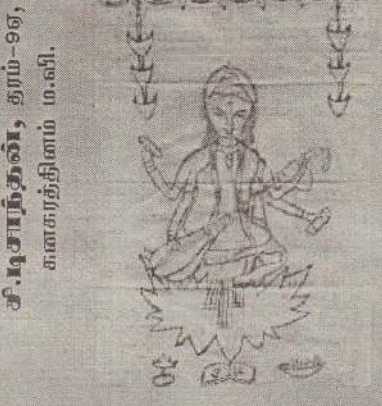 சி.டிசாந்தன், தரம்-9ஏ,
கனகரத்தினம் ம.வி.